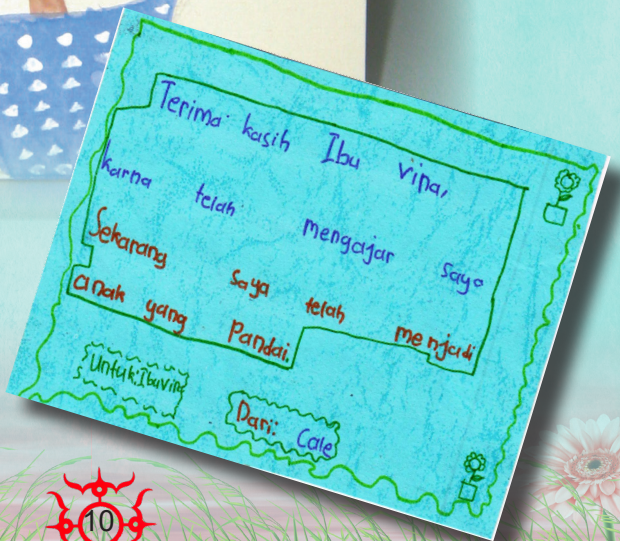 Terima kasih Ibu vina,
karna telah mengajar saya
Sekarang saya telah menjadi
anak yang Pandai.
Untuk: Ibu vina
Dari: Cale
10